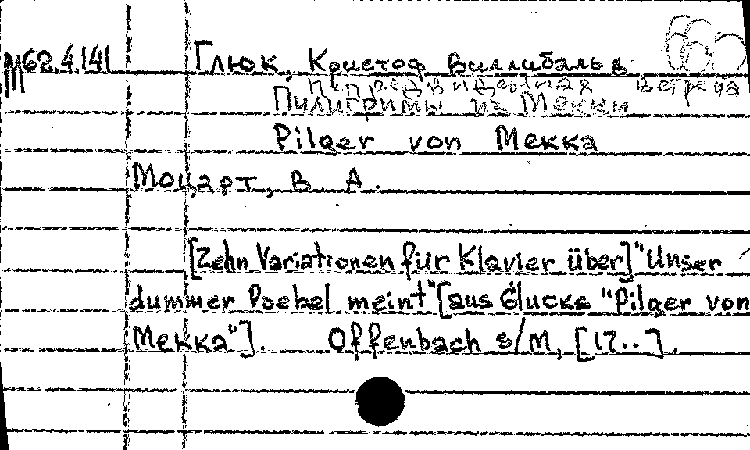 М62.4.141 Глюк, Кристоф Виллибальд
Непредвиденная встреча
Пилигримы из Мекки
Pilger von Mekka
Моцарт, В А.
[Zehn Variationen für Klavier über] "Unser
dummer Poebel meint" [aus Glucks "Pilger von
Mekka"]. Offenbach s/M, [17..].